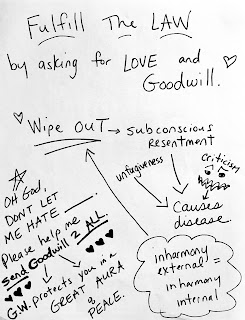 Fulfill The LAW
by asking for LOVE and
Goodwill.
Wipe OUT → subconscious
resentment
unfugiveness
Criticism
Causes
disease
OH God,
DONT LET
ME HATE ____.
Please help me
send Goodwill 2 ALL.
G.W. protects you in a
GREAT AURA
of
PEACE.
inharmony
external =
inharmony
internal